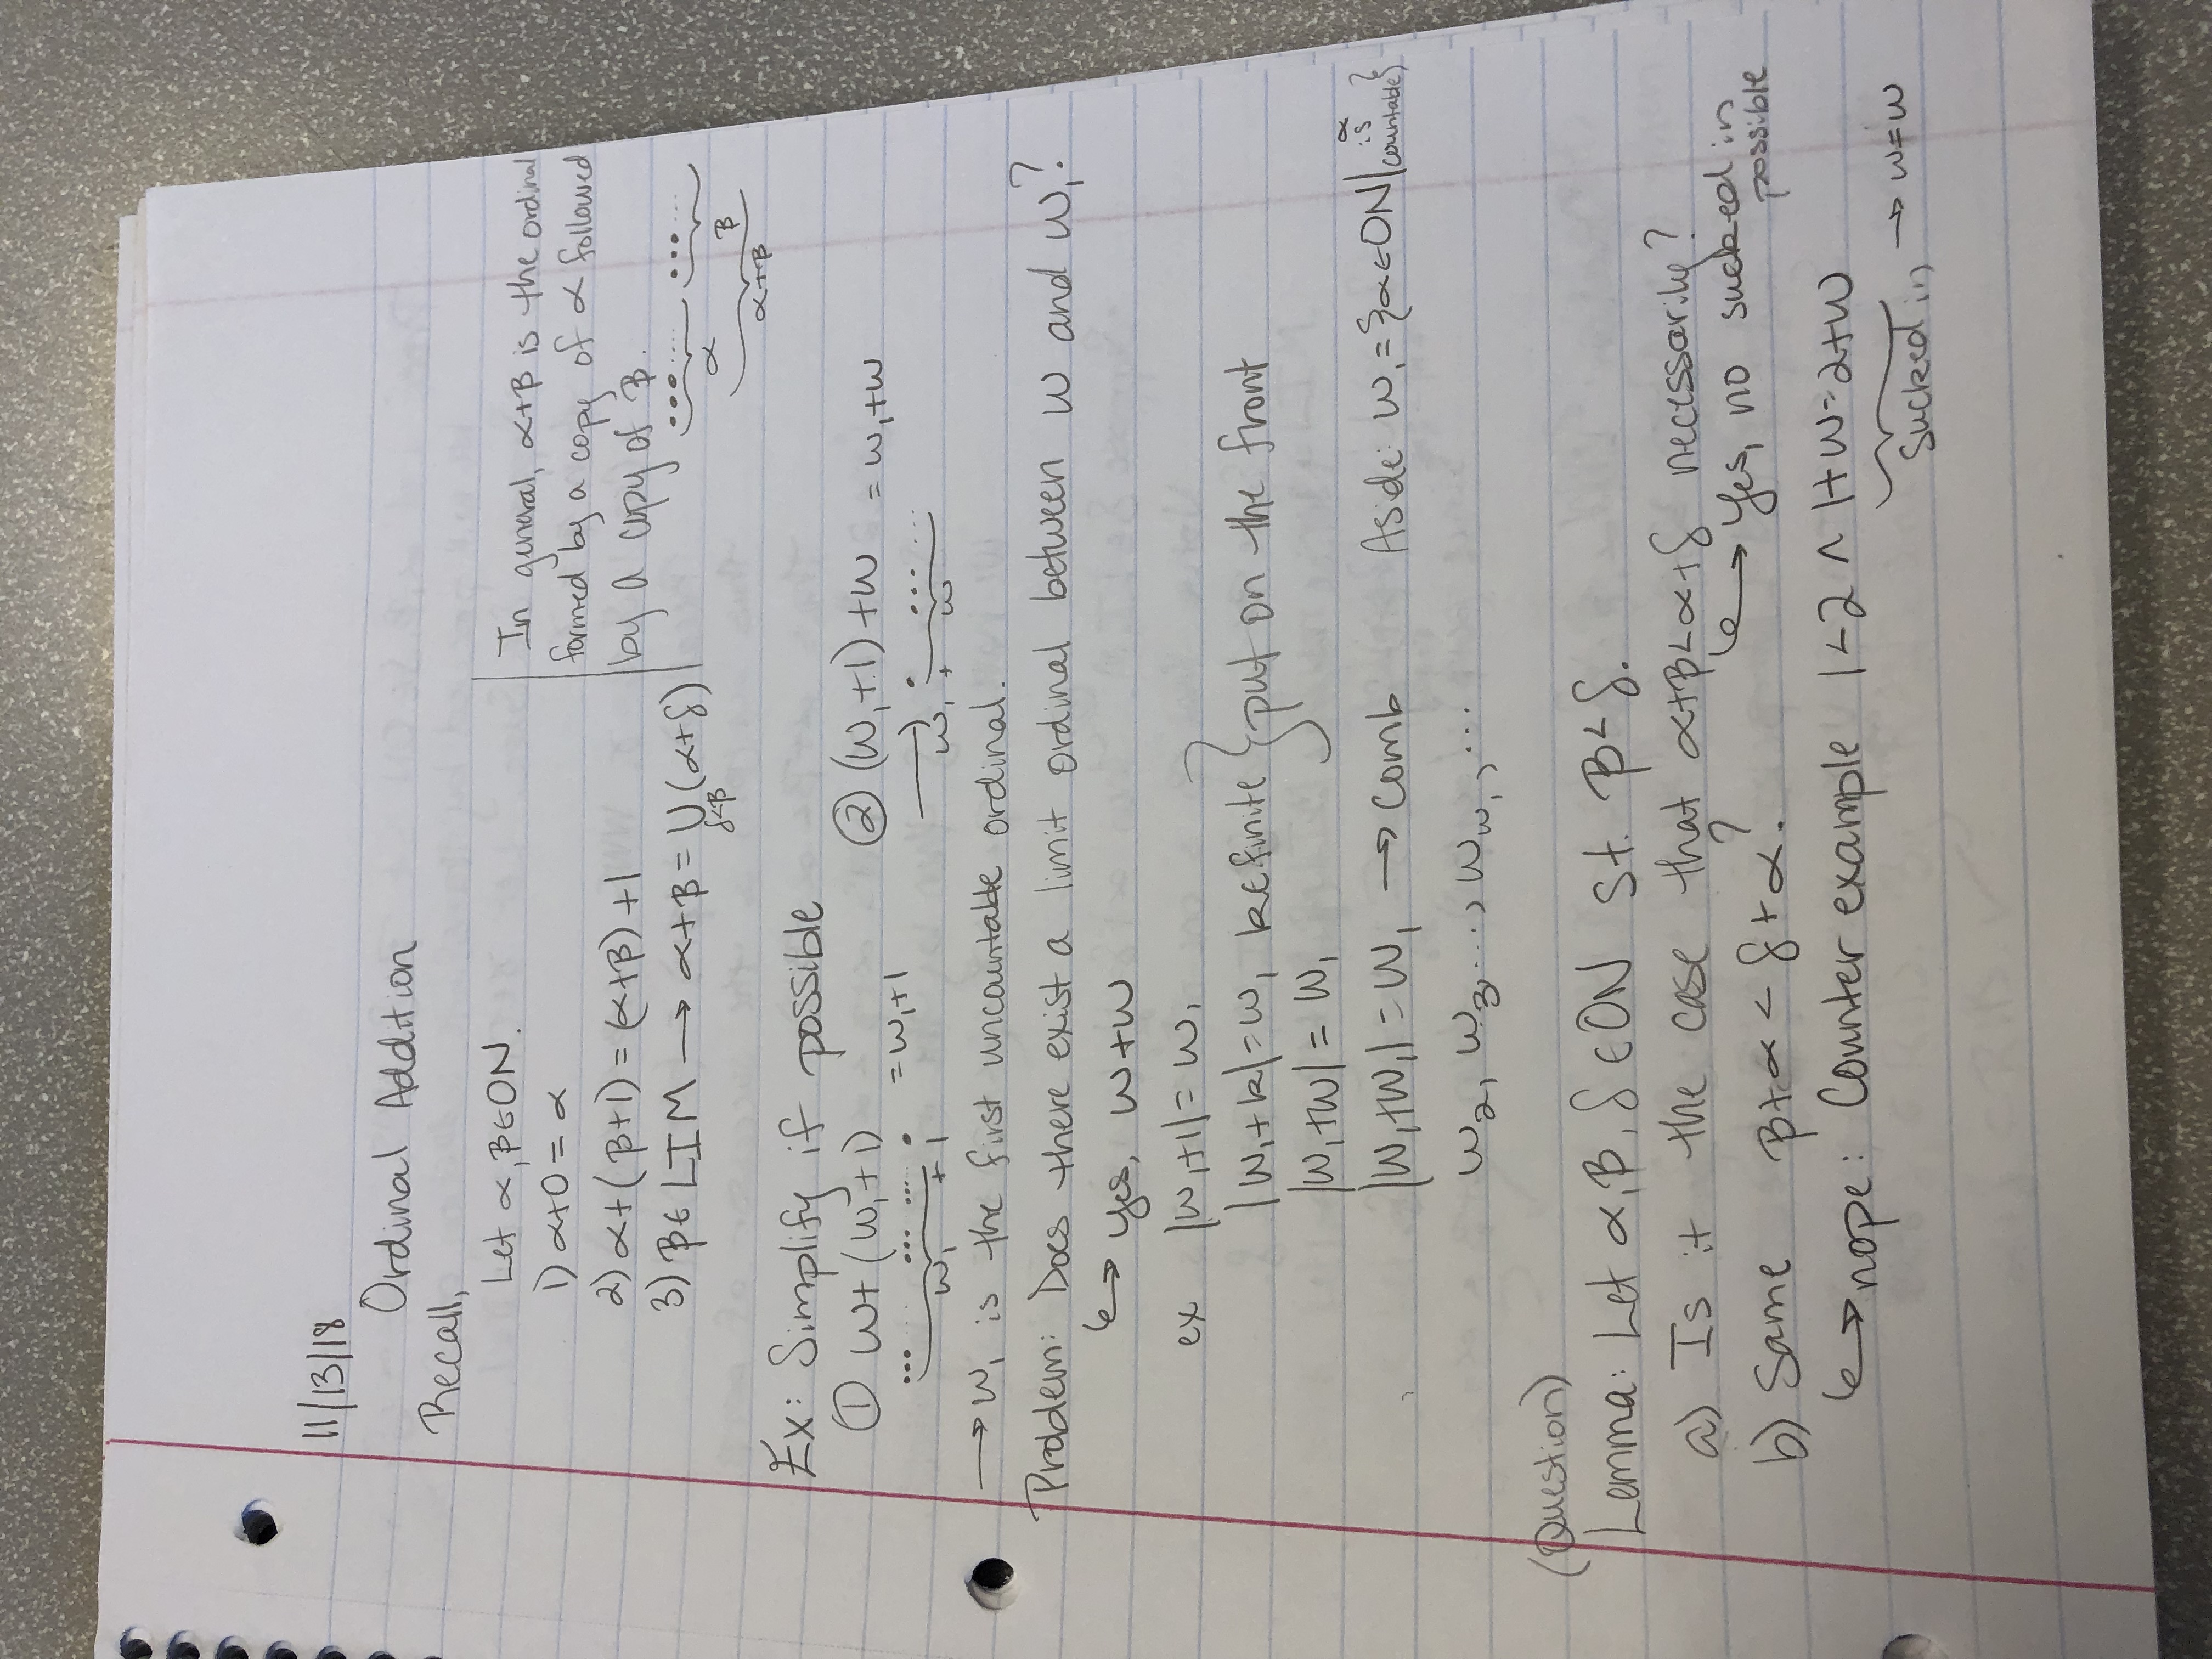 11/13/18
Ordinal Addition
Recall,
Let α, β∈ON.
1) α+0 = α
2) α+(β+1) = (α+β)+1
3) β∈LIM → α+β = ∪(α+δ)
δ<β
In general, α+β is the ordinal
formed by a copy of α followed
by a copy of β.
α β
α+β
Ex: Simplify if possible
① ω+(ω₁+1) = ω₁+1
ω₁ + 1
② (ω₁+1)+ω = ω₁+ω
ω₁ + ω
→ ω₁ is the first uncountable ordinal.
Problem: Does there exist a limit ordinal between ω and ω₁?
↪ yes, ω+ω
ex |ω₁+1| = ω₁
|ω₁+k| = ω₁ k∈finite } put on the front
|ω₁+ω| = ω₁
|ω₁+ω₁| = ω₁ → comb Aside: ω₁ = {α∈ON| α is countable}
ω₂, ω₃, ..., ω_ω₁, ...
(Question)
Lemma: Let α, β, δ ∈ON st. β<δ.
a) Is it the case that α+β<α+δ necessarily?
↪ Yes, no sucked in
possible
b) Same β+α < δ+α?
↪ nope: Counter example 1<2 ∧ 1+ω=2+ω
sucked in → ω=ω